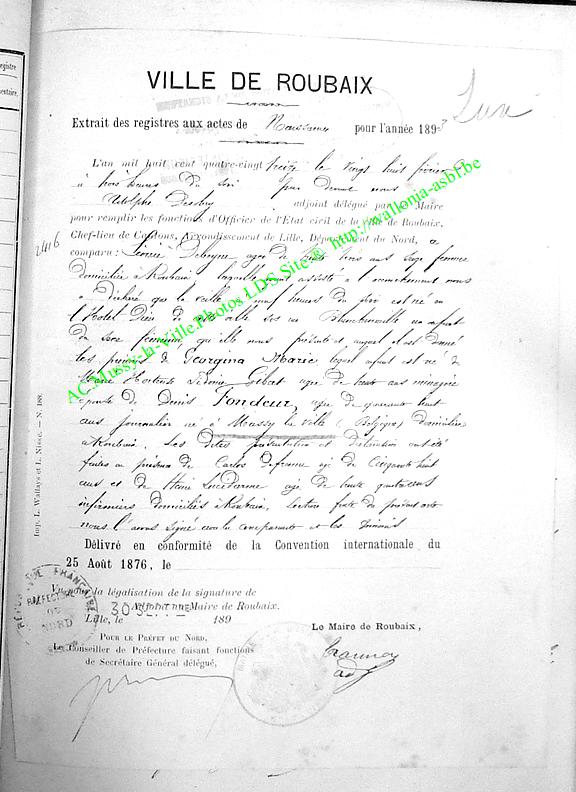 VILLE DE ROUBAIX
Extrait des registres aux actes de Naissance pour l'année 1893
L'an mil huit cent quatre-vingt treize le vingt huit février
à trois heures du soir par devant nous
Adolphe adjoint délégué par le Maire
pour remplir les fonctions d'Officier de l'Etat civil de la ville de Roubaix,
Chef-lieu de Cantons, Arrondissement de Lille, Département du Nord, a
2416
comparu : Léonie agée de trois ans sage femme
domiciliée à Roubaix laquelle ayant assisté à l'accouchement nous
a déclaré que la veille à neuf heures du soir est né en
l'hôtel Dieu de cette ville sis rue Blanchemaille un enfant
du sexe féminin qu'elle nous présente et auquel il est donné
les prénoms de Georgina Marie lequel enfant est né de
Marie Hortense agée de trente ans ménagère
épouse de Denis Fondeur, agé de quarante huit
ans journalier né à Mussy la Ville (Belgique) domiciliés
à Roubaix. Les dites présentation et déclaration ont été
faites en présence de Carlos agé de Cinquante huit
ans et de Henri agé de trente quatre ans
infirmiers domiciliés à Roubaix, lecture faite du présent acte
nous l'avons signé avec la comparante et les témoins
Délivré en conformité de la Convention internationale du
25 Août 1876, le
Vu pour la légalisation de la signature de
Adjoint au Maire de Roubaix.
Lille, le 30 189
POUR LE PRÉFET DU NORD,
Le Conseiller de Préfecture faisant fonctions
de Secrétaire Général délégué,
Le Maire de Roubaix,
Imp. L. Wattays et L. Nisse. — N. 188.
PRÉFECTURE
DU
NORD
AC.Mussy-la-Ville.Photos LDS.Site® http://wallonia-asbl.be